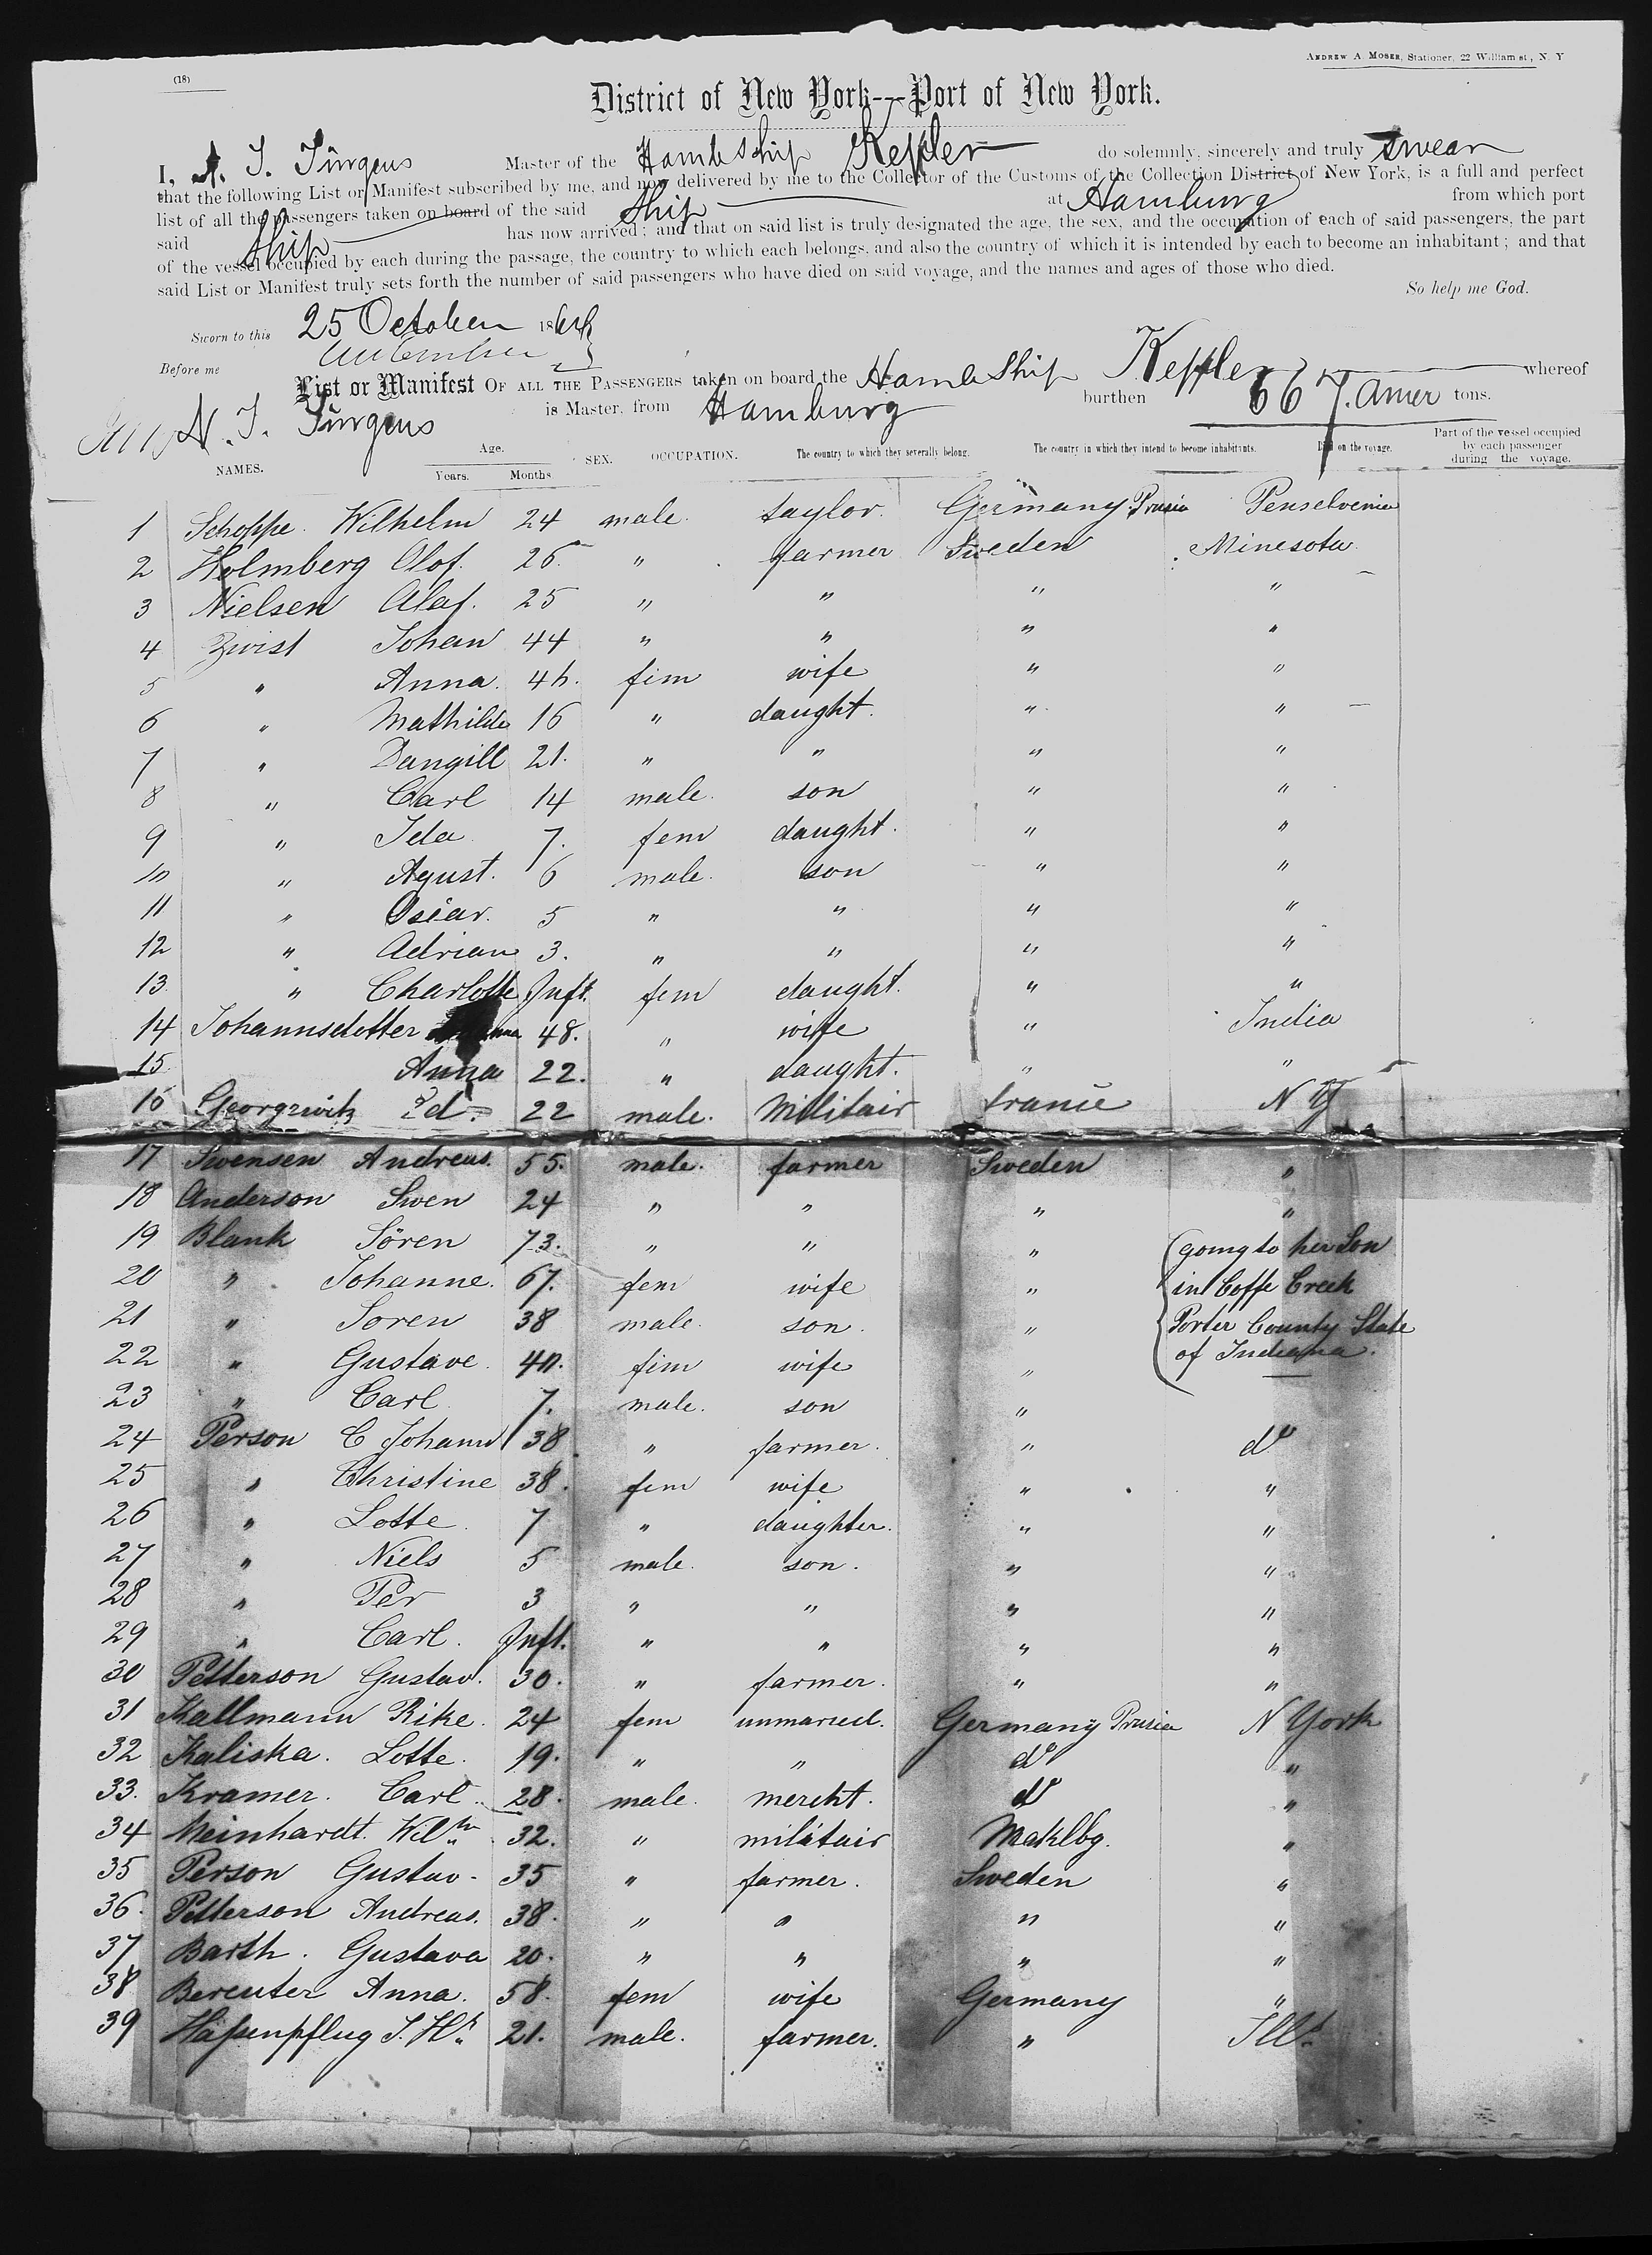 (18)
ANDREW A MOSER, Stationer, 22 William st, N. Y
District of New York---Port of New York.
I, N. J. Jürgens Master of the Hamb Ship Keppler do solemnly, sincerely and truly swear
that the following List or Manifest subscribed by me, and now delivered by me to the Collector of the Customs of the Collection District of New York, is a full and perfect
list of all the passengers taken on board of the said Ship at Hamburg from which port
said Ship has now arrived; and that on said list is truly designated the age, the sex, and the occupation of each of said passengers, the part
of the vessel occupied by each during the passage, the country to which each belongs, and also the country of which it is intended by each to become an inhabitant; and that
said List or Manifest truly sets forth the number of said passengers who have died on said voyage, and the names and ages of those who died.
So help me God.
Sworn to this 25 October 186
Before me
List or Manifest OF ALL THE PASSENGERS taken on board the Hamb Ship Keppler whereof
N. J. Jürgens is Master, from Hamburg burthen 667. Amer tons.
NAMES. Age. Years. Months SEX. OCCUPATION. The country to which they severally belong. The country in which they intend to become inhabitants. Died on the voyage. Part of the vessel occupied by each passenger during the voyage.
1 Schoppe. Wilhelm 24 male. taylor. Germany Prusia Penselvenia
2 Holmberg Olof. 26 " farmer Sweden Minesota
3 Nielsen Olaf. 25 " " " "
4 Zwist Johan 44 " " " "
5 " Anna. fem wife " "
6 " Mathilde 16 " daught. " "
7 " 21. " " " "
8 " Carl 14 male. son " "
9 " Ida 7. fem daught. " "
10 " Agust. 6 male. son " "
11 " Oscar. 5 " " " "
12 " Adrian 3. " " " "
13 " Charlotte Inft. fem daught. " "
14 Johannsdotter 48. " wife " India
15 Anna 22. " daught. " "
16 Georgewitz Ed. 22 male. Militair France N Y
17 Swensen Andreas. 55. male. farmer Sweden "
18 Anderson Swen 24 " " " "
19 Blank Sören 73. " " " (going to her Son
20 " Johanne. 67. fem wife " in Coffe Creek
21 " Soren 38 male. son. " Porter County State
22 " Gustave. 40. fem wife " of Indiana.
23 " Carl 7. male. son "
24 Person C Johann 38 " farmer. " do
25 " Christine 38. fem wife " "
26 " Lotte. 7 " daughter. " "
27 " Niels 5 male. son. " "
28 " Per 3 " " " "
29 " Carl. Inft. " " " "
30 Petterson Gustav. 30. " farmer. " "
31 Kallmann Rike. 24 fem unmaried. Germany Prusia N York
32 Kaliska. Lotte. 19. " " do "
33. Kramer. Carl. 28. male. mercht. do "
34 Meinhardt. Wilhm 32. " militair Meklbg. "
35 Person Gustav 35 " farmer. Sweden "
36. Petterson Andreas. 38. " " " "
37 Barth. Gustava 20. " " " "
38 Bereuter Anna. 58. fem wife Germany "
39 Haßenpflug J. Hh. 21. male. farmer. " Ills.